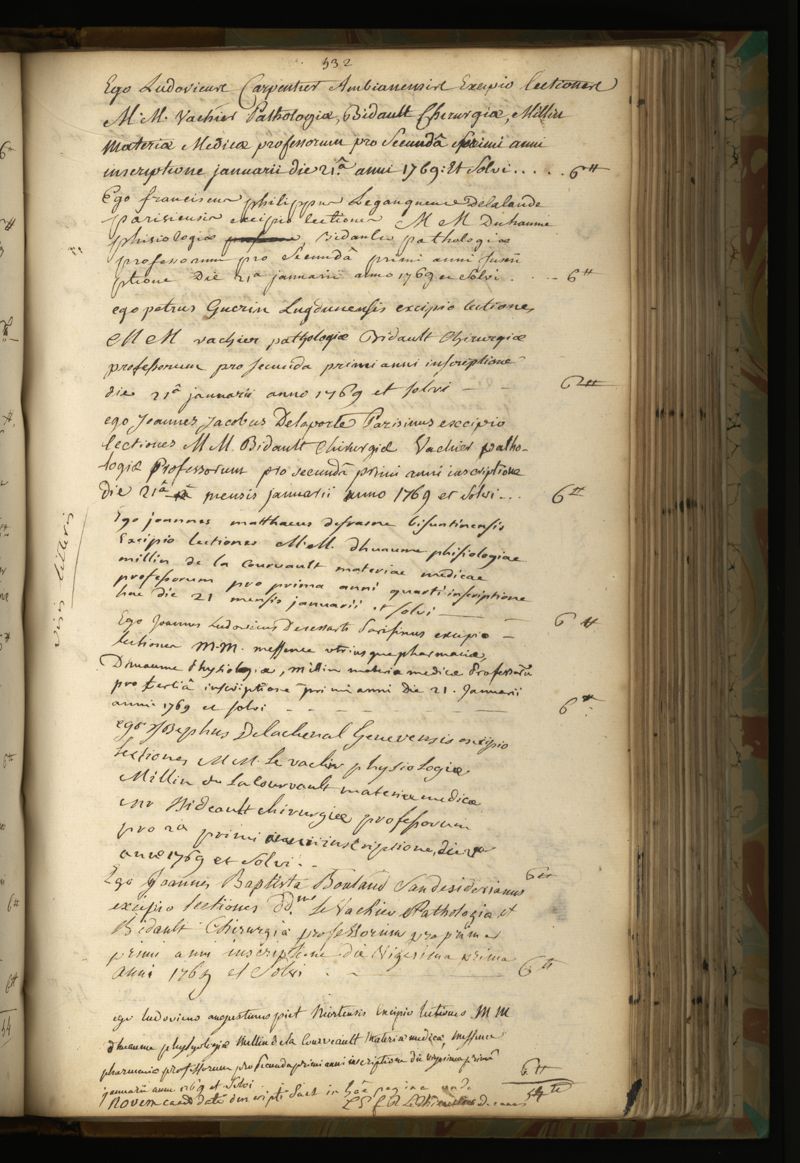 532
Ego Ludovicus Carpentier Ambianensis Excipio lectiones
M. M. Vachier Pathologiæ, Bidault Chirurgiæ, Millin
materiæ Medicæ professorum pro Secundâ primi anni
inscriptione januarii die 21.â anni 1769: Et Solvi..... 6 ₶
Ego franciscus philippus Delalande
parisiensis excipio lectiones M M Duhaume
phisiologiæ Bidault pathologiæ
professorum pro Secundâ primi anni
ptione Die 21a januarii anno 1769 et Solvi. - - 6 ₶
ego petrus Guerin Lugdunensis excipio lectiones
M M vachier pathologiæ Bidault Chirurgiæ
professorum pro secunda primi anni inscriptione
die 21â januarii anno 1769 et solvi - - 6 ₶
ego Joannes Jacobus Delaporte Parisinus excipio
lectiones M M. Bidault Chirurgiæ Vachier patho-
logiæ Professorum pro secundâ primi anni inscriptione
die 21â mensis januarii anno 1769 et solvi... 6 ₶
visis litteris
Ego joannes matthaeus defrasne bisuntinensis
Excipio lectiones M.M. dhuaume phisiologiae
millin de la Courvault materiae medicae
professorum pro prima anni quarti inscriptione
hac die 21 mensis januarii et solvi — — 6 ₶
Ego Joannes Ludovicus Desessarts Parisinus excipio -
lectiones M.M. messence utriusque pharmaciæ,
Dhuaume Physiologiæ, millin materiæ medicæ Professorū
pro tertiâ inscriptione primi anni die 21. Januarii
anni 1769 et solvi - - - - 6 ₶
ego josephus Delachenal Genevensis excipio
lectiones M M. le vacher physiologiæ
Millin de la Courvault materiæ medicæ
Bideault chirurgiæ professorum
pro 2a primi anni inscriptione, die
anno 1769 et Solvi. - 6 ₶
Ego Joannes Baptista Boulaud Sandesiderianus
excipio lectiones DD. le Vachier Pathologiæ et
Bidault Chirurgiæ professorum pro prima
primi anni inscriptione die Vigesima prima
anni 1769 et Solvi - - 6 ₶
ego ludovicus augustinus piet Excipio lectiones M M
dhuaume physiologiæ Millin de la Courveault Materiæ medicæ, Messence
pharmaciæ professorum pro secunda primi anni inscriptione die vigesima primâ
januarii anni 1769 et Solvi. 6 ₶
Novem candidati inscripti sunt in hâc pagina 54 ₶